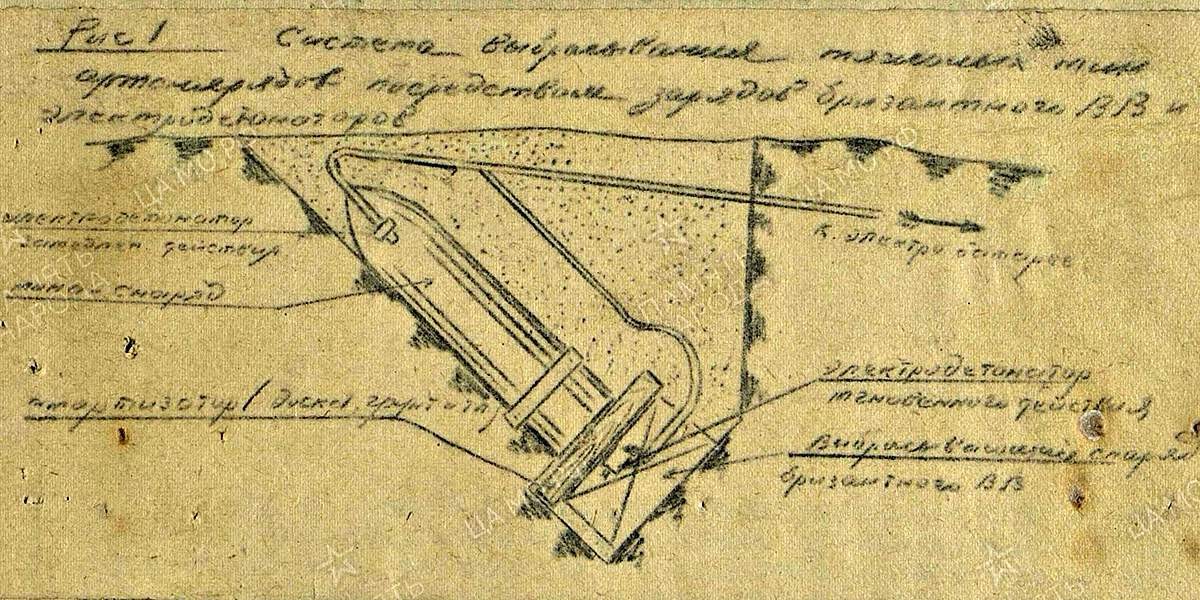 Рис 1 Система выбрасывания тяжелых мин
артснарядов посредством зарядов бризантного ВВ и
электродетонаторов
электродетонатор
замедлен действия
мина и снаряд
амортизатор (доски, грунт
к электро батарее
электродетонатор
мгновенного действия
выбрасывающий снаряд
бризантного ВВ
ЦА МО РФ
ПАМЯТЬ
НАРОДА